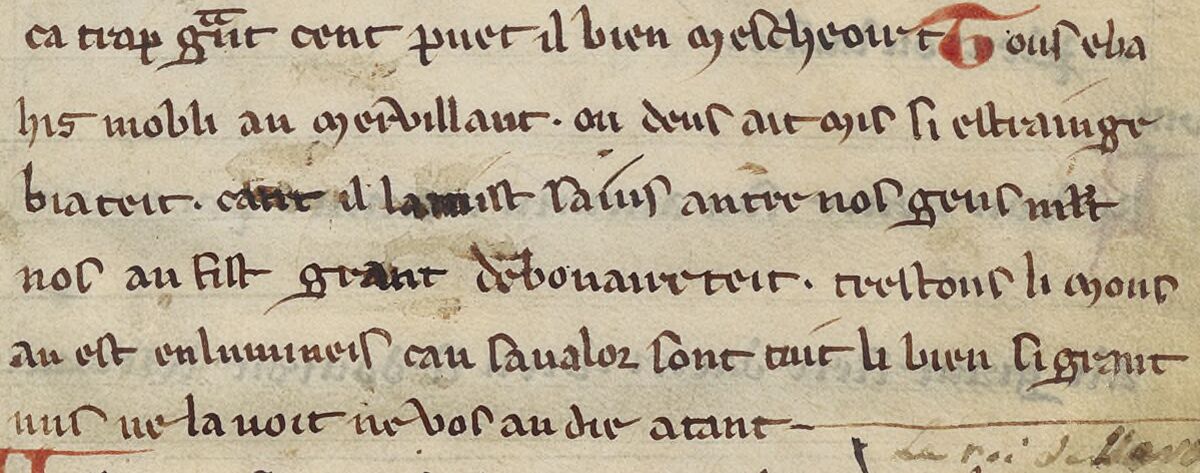 ca trap gãnt cent puet il bien mescheoir et Tous eba
his mobli au mervillant. ou deus ait mis si estrainge
biateit. cant il la mist saius antre nos gens
nos au fist grant debonaireteit. trestous li mons
an est enlumineis cau sa valor sont tuit li bien si grant
nus ne la voit ne vos an die atant